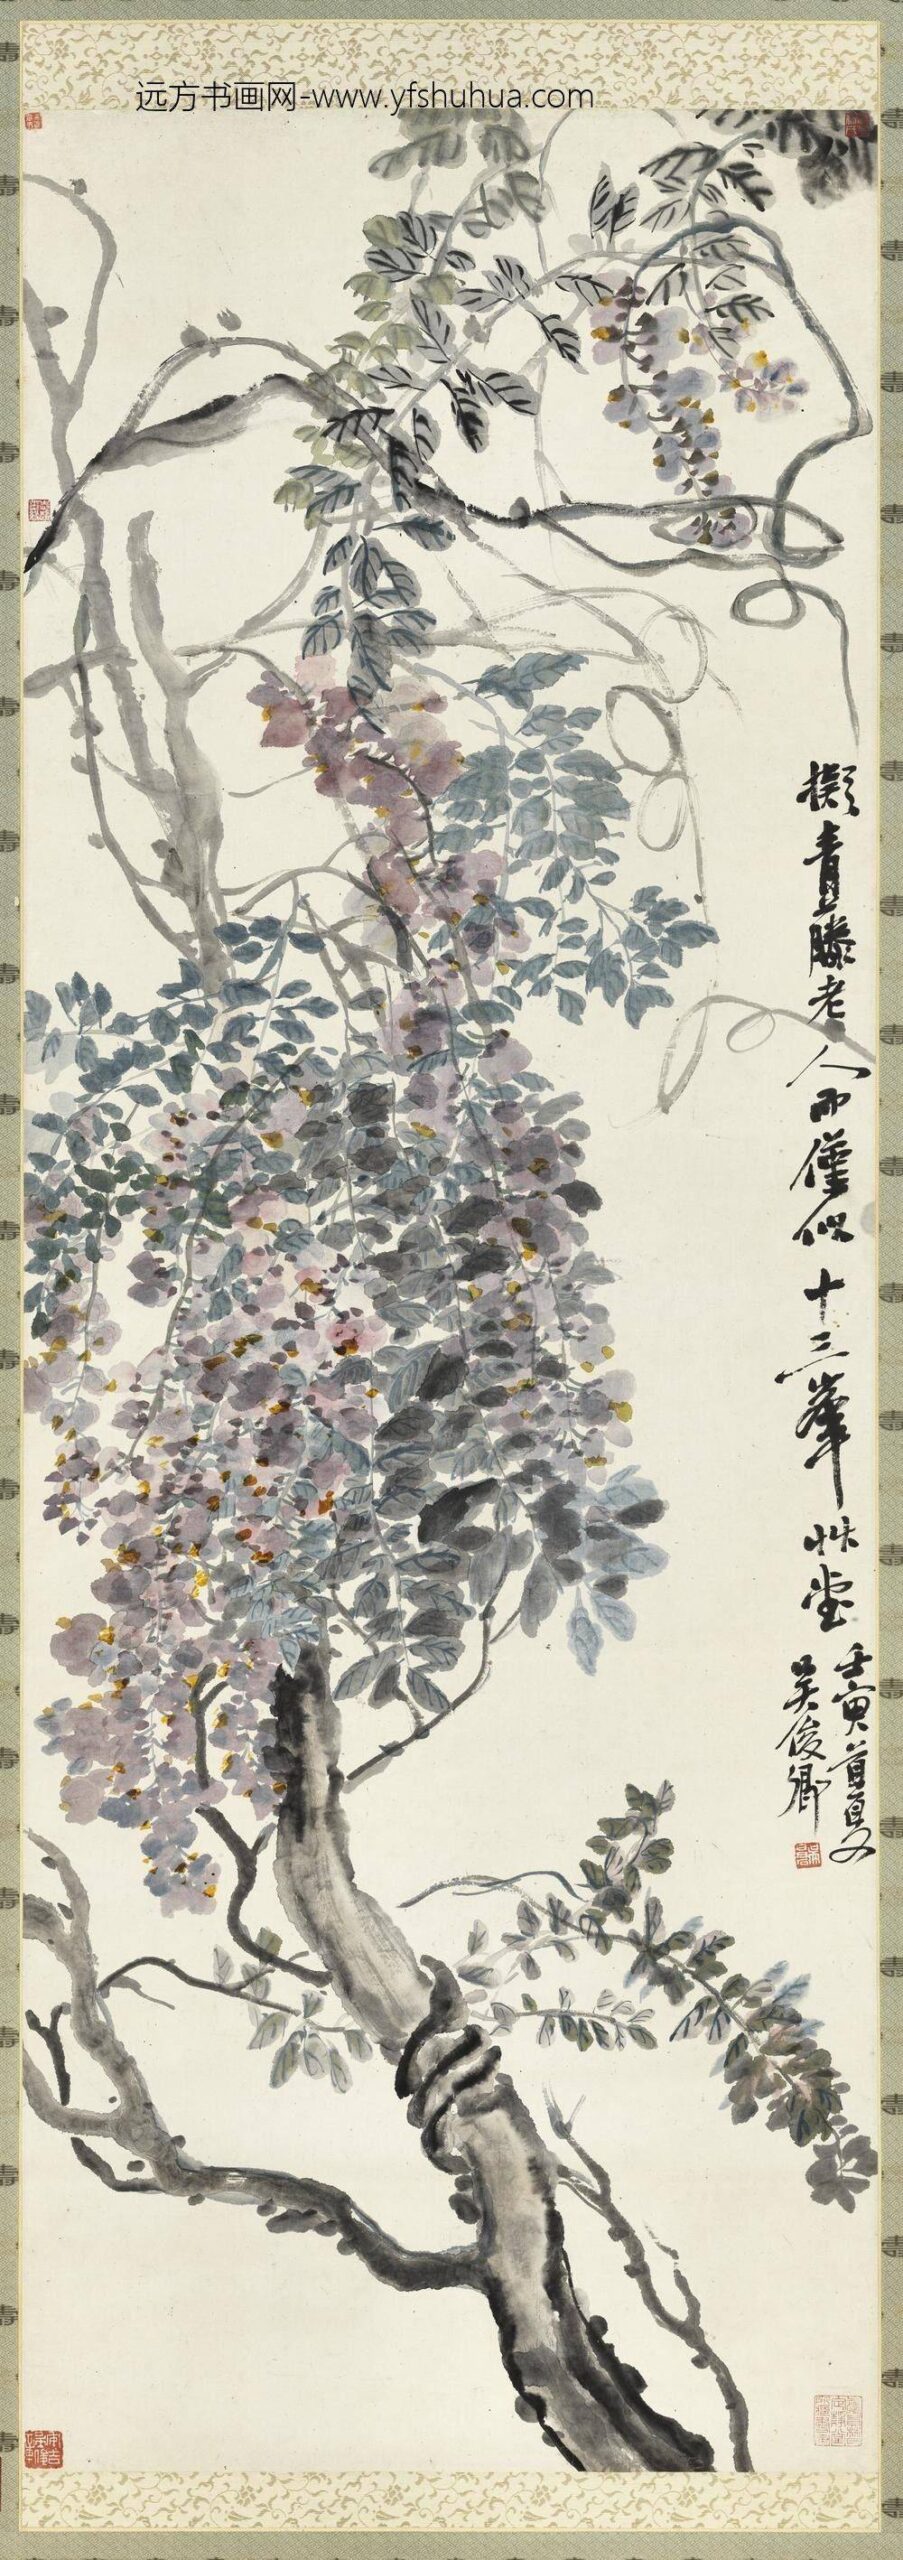 远方书画网-www.yfshuhua.com
擬青藤老人而僅似十三峯艸堂
壬寅首夏
吳俊卿